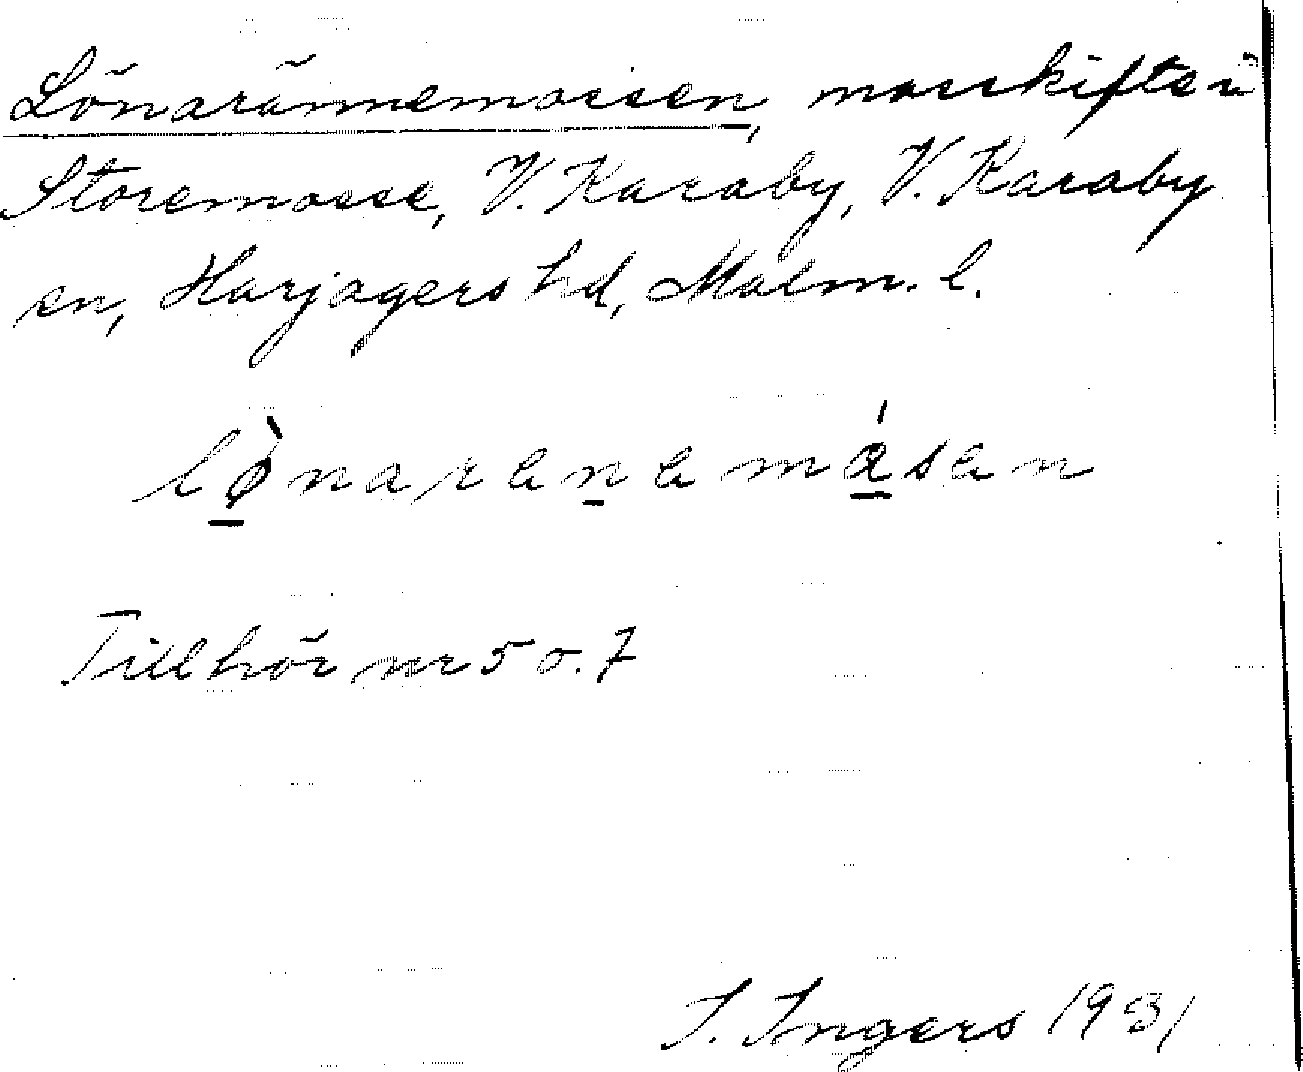 Lönarännemossen, mosskifte i
Storemosse, V. Karaby, V. Karaby
sn, Harjagers hd, Malm. l.
lø̀narenemásen
Tillhör nr 5 o. 7
I. Ingers 1931